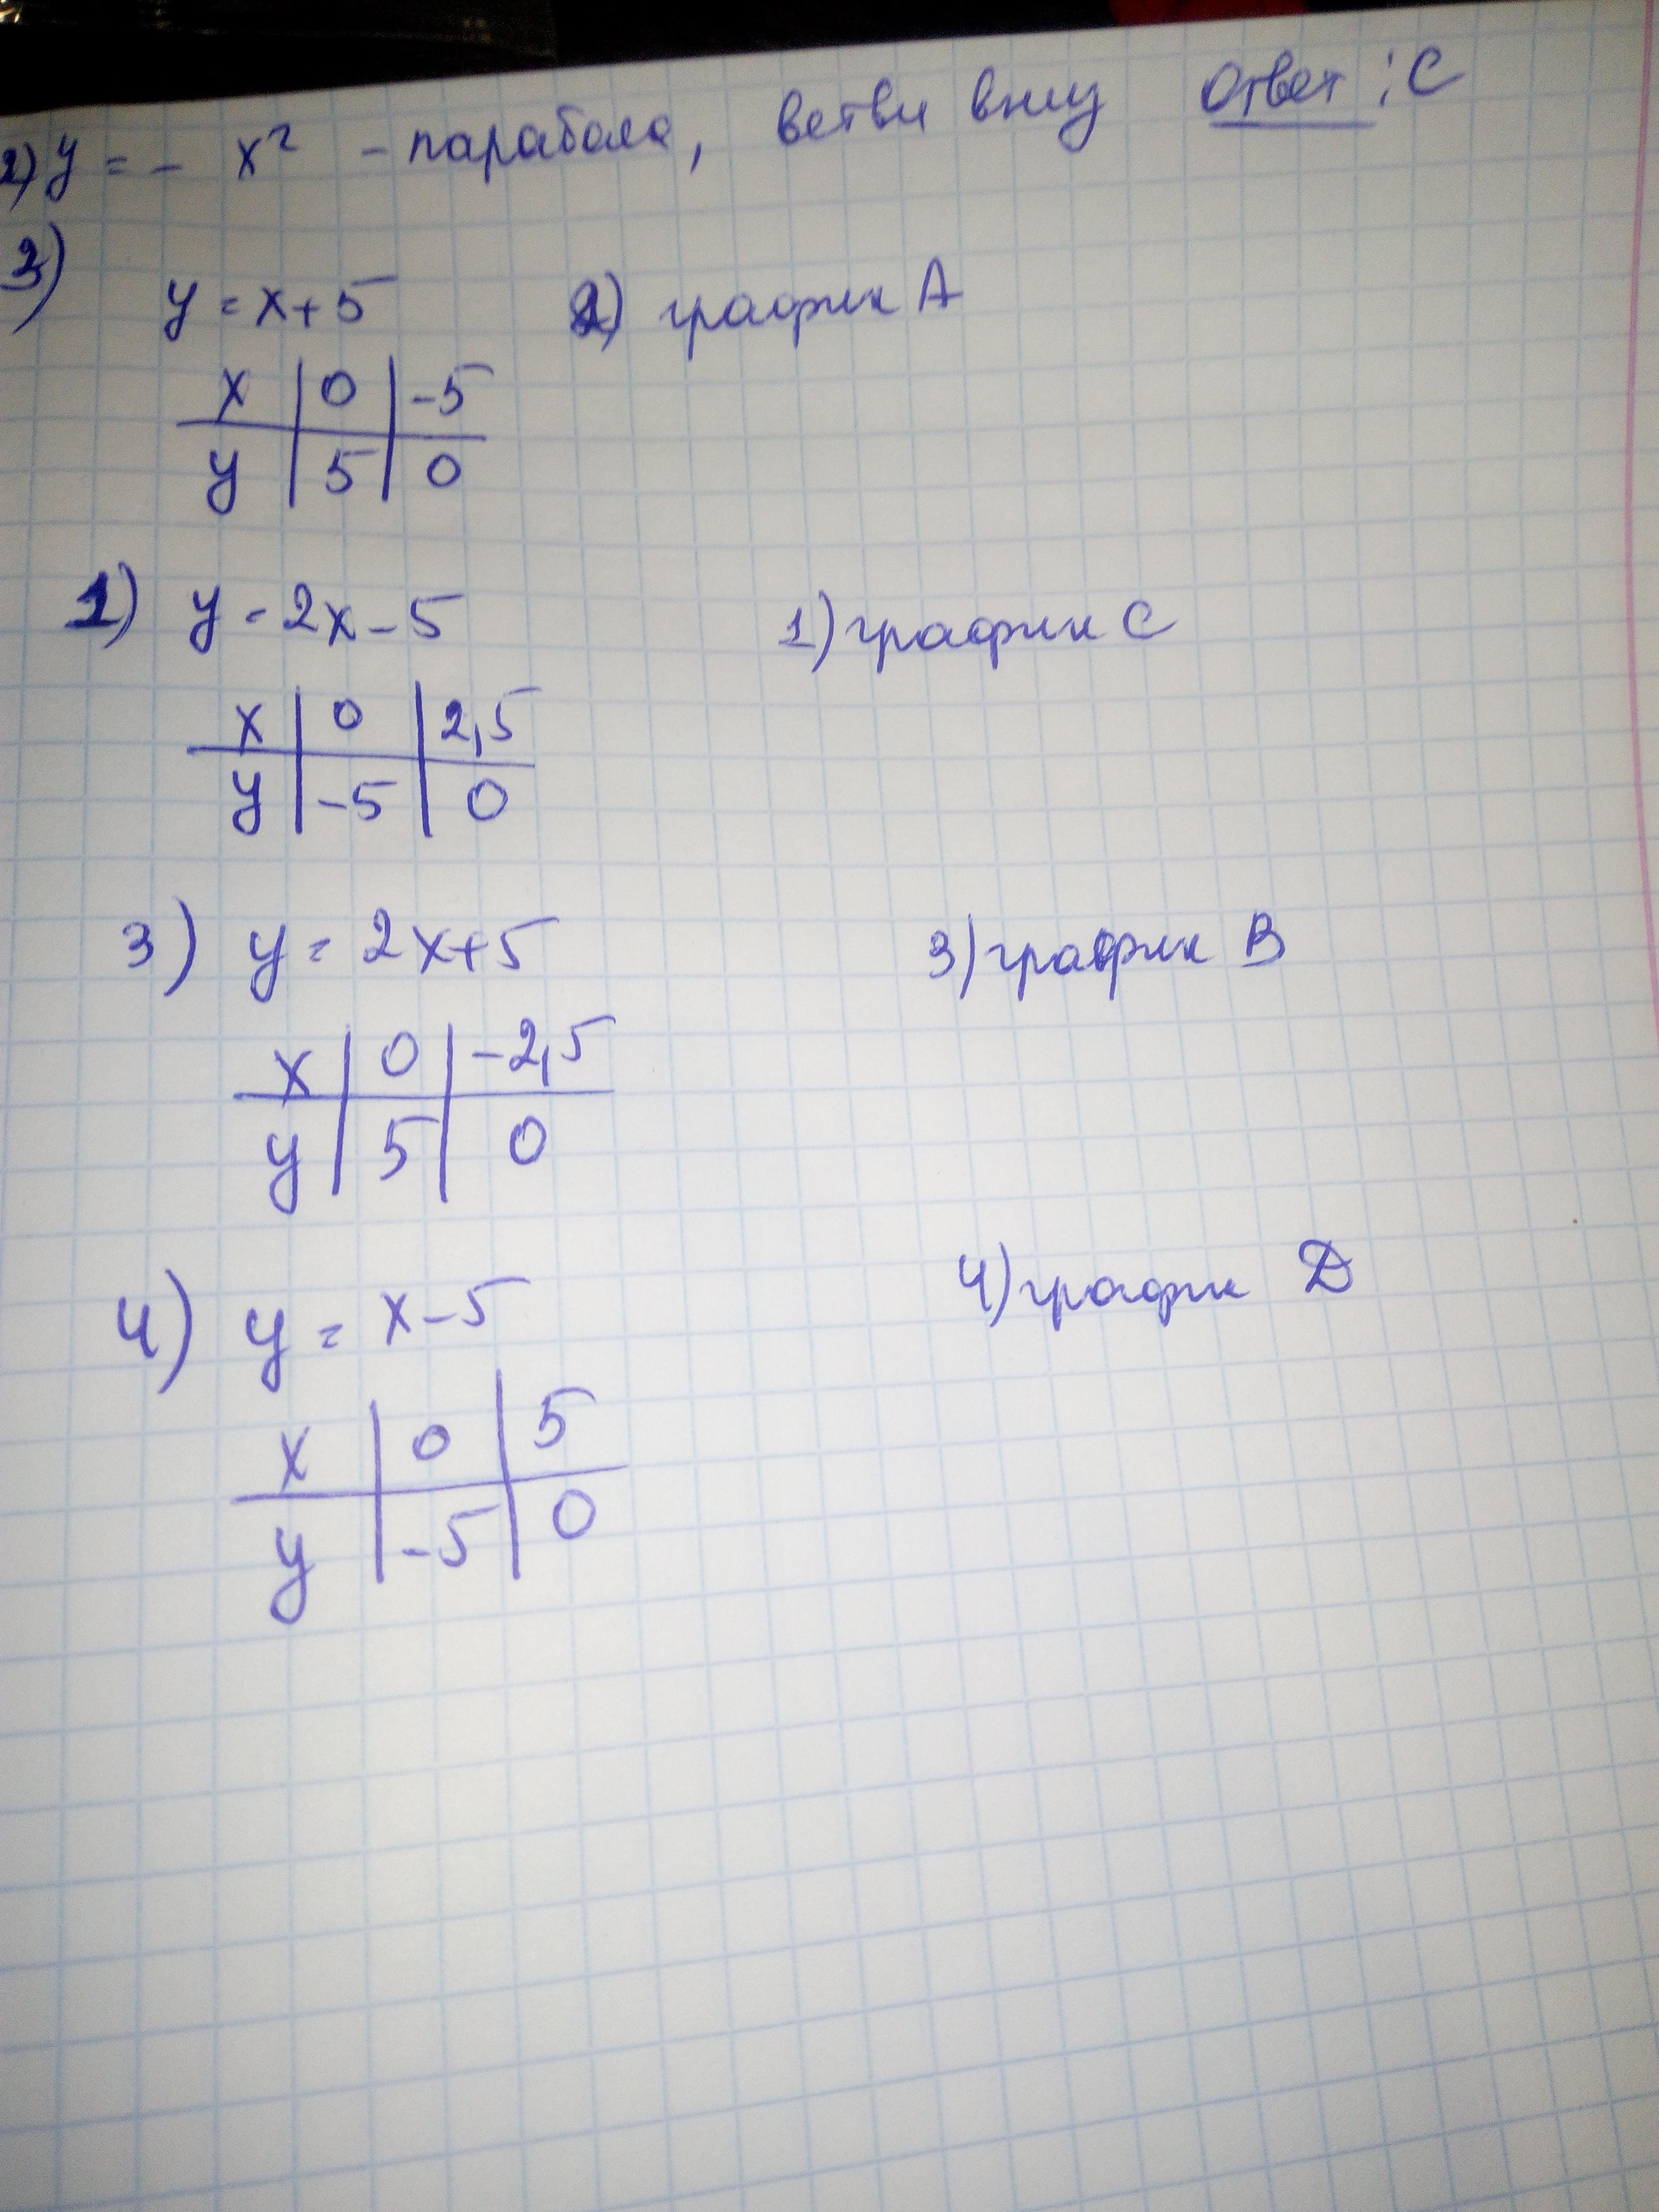 2) y = - x² - парабола, ветви вниз Ответ: С
3)
y = x + 5 2) график А
x | 0 | -5
y | 5 | 0
1) y = 2x - 5 1) график С
x | 0 | 2,5
y | -5 | 0
3) y = 2x + 5 3) график В
x | 0 | -2,5
y | 5 | 0
4) y = x - 5 4) график D
x | 0 | 5
y | -5 | 0